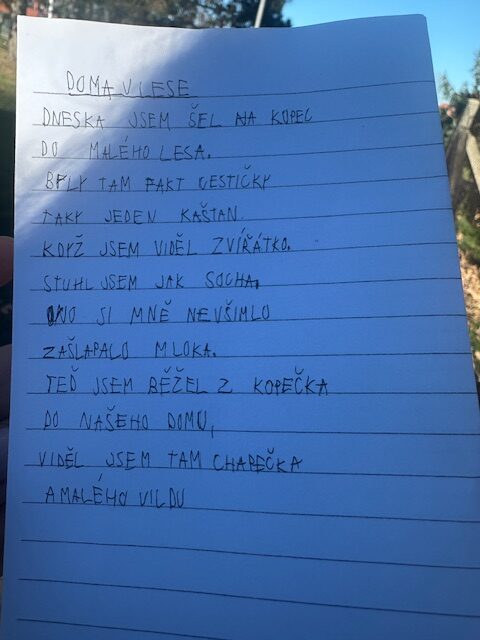 DOMA V LESE
DNESKA JSEM ŠEL NA KOPEC
DO MALÉHO LESA.
BYLY TAM FAKT CESTIČKY
TAKY JEDEN KAŠTAN.
KDYŽ JSEM VIDĚL ZVÍŘÁTKO.
STUHL JSEM JAK SOCHA,
VNO SI MNĚ NEVŠIMLO
ZAŠLAPALO MLOKA.
TEĎ JSEM BĚŽEL Z KOPEČKA
DO NAŠEHO DOMU,
VIDĚL JSEM TAM CHAPEČKA
A MALÉHO VILDU